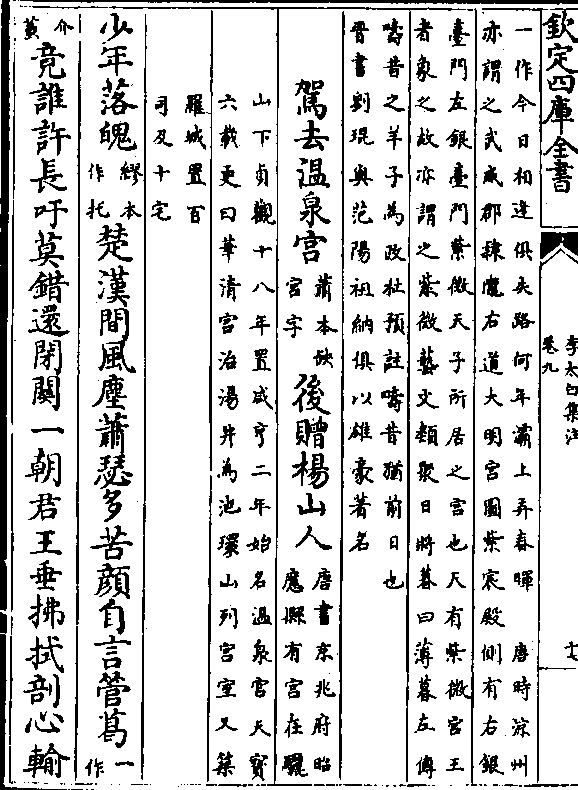 欽定四庫全書
李太白集注
卷九
十七
一作今日相逢俱失路何年灞上弄春暉　唐時涼州
亦謂之武威郡隸隴右道大明宫圖紫宸殿側有右銀
臺門左銀臺門紫微天子所居之宫也天有紫微宫王
者象之故亦謂之紫微藝文類聚日將暮曰薄暮左傳
疇昔之羊子為政杜預註疇昔猶前日也
晉書劉琨與范陽祖納俱以雄豪著名
駕去温泉宫蕭本缺宫字後贈楊山人唐書京兆府昭應縣有宫在驪
山下貞觀十八年置咸亨二年始名温泉宫天寶
六載更曰華清宫治湯井為池環山列宫室又築
羅城置百
司及十宅
少年落魄繆本作托楚漢間風塵蕭瑟多苦顔自言管葛一作
介蠆竟誰許長吁莫錯還閉關一朝君王垂拂拭剖心輸